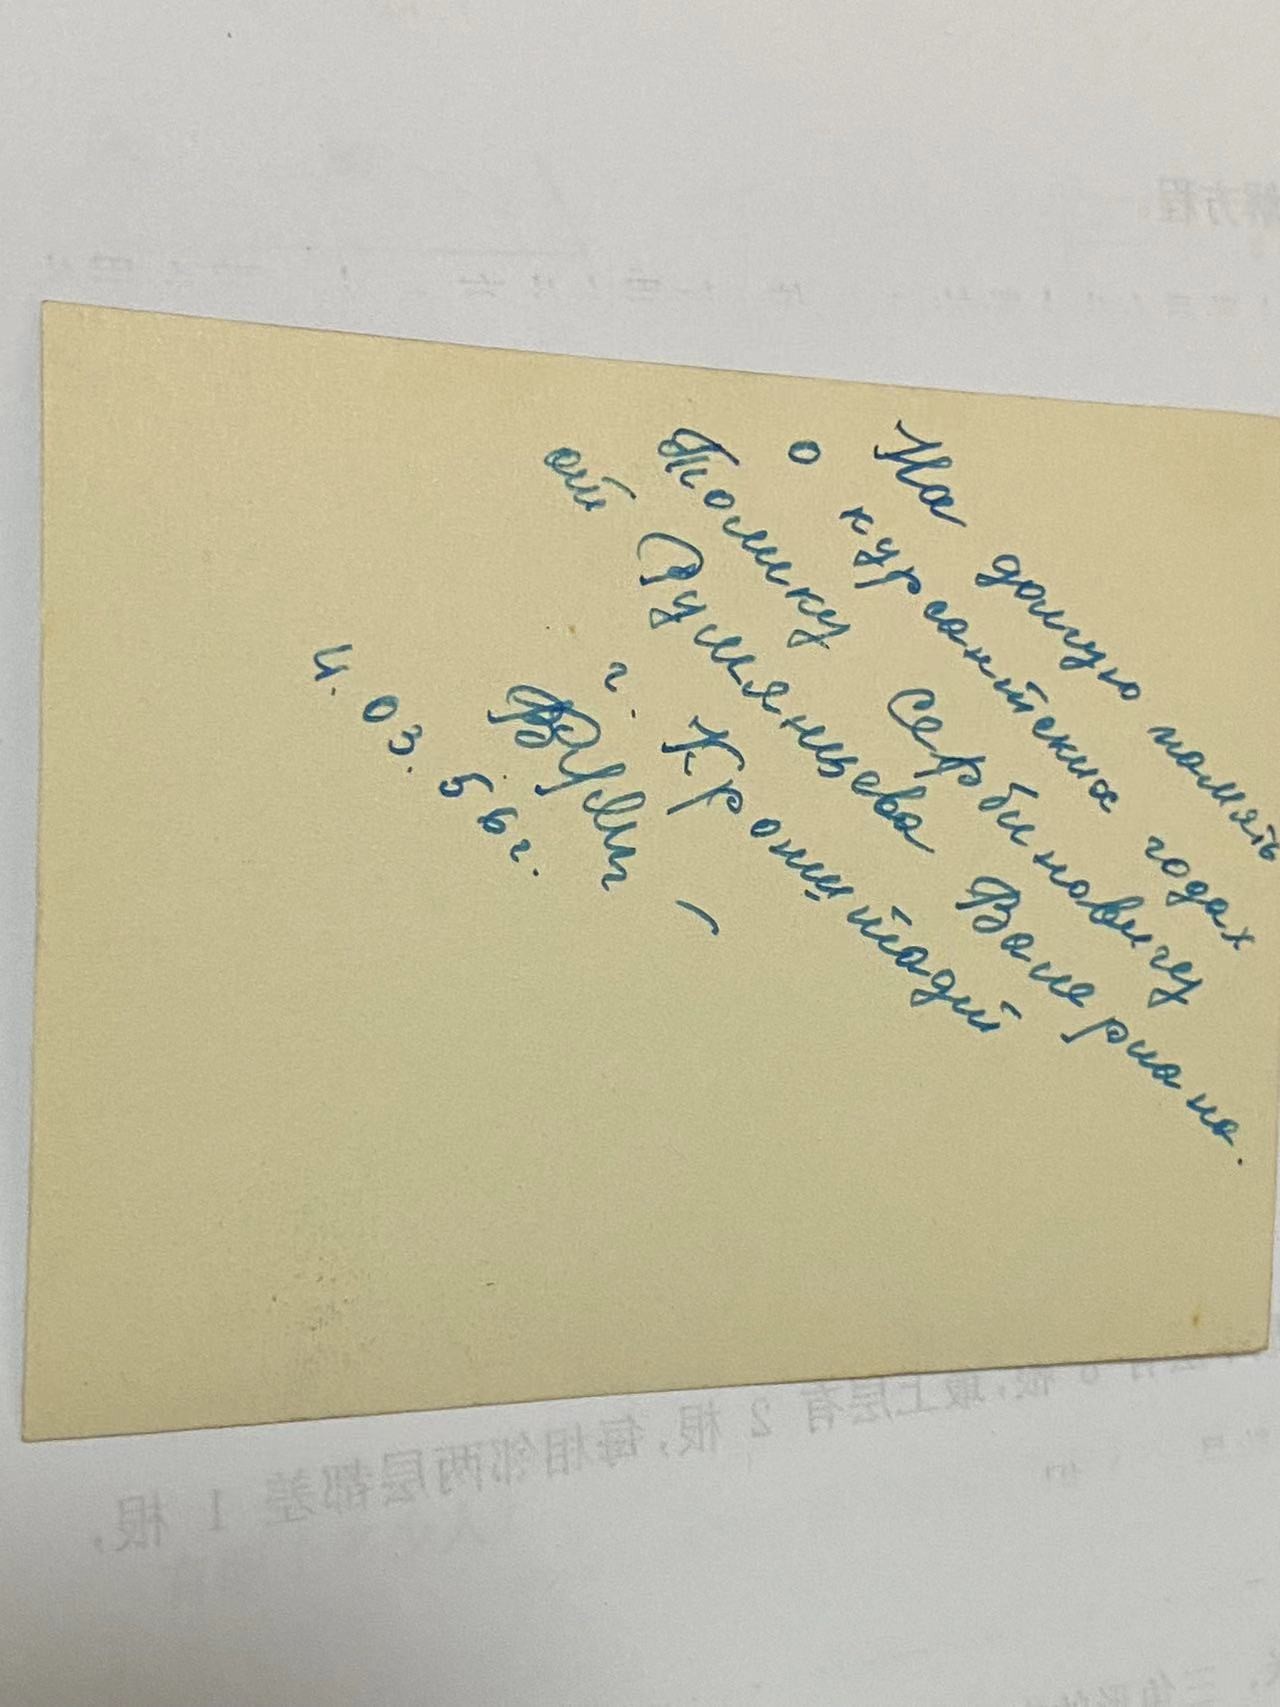 На долгую память
о курсантских годах
Толику Сербиновичу
от Румянцева Валериана.
г. Кронштадт
4. 03. 56 г.
解方程。
根,最上层有 2 根,每相邻两层都差 1 根,